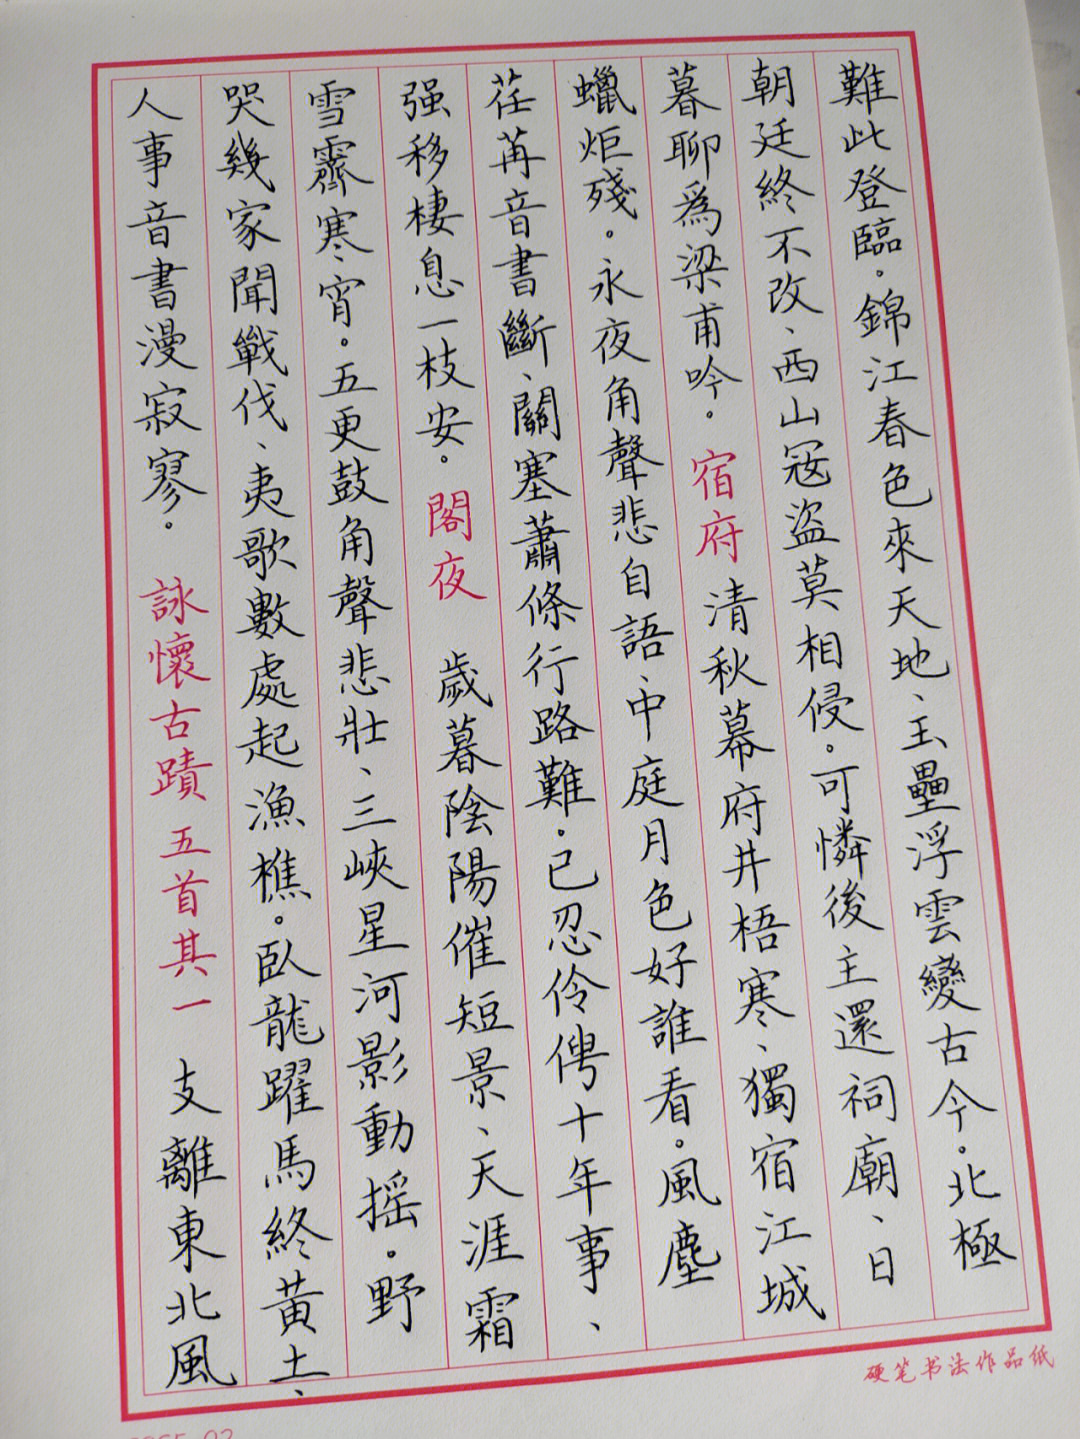 難此登臨。錦江春色來天地、玉壘浮雲變古今。北極
朝廷終不改、西山寇盜莫相侵。可憐後主還祠廟、日
暮聊爲梁甫吟。宿府 清秋幕府井梧寒、獨宿江城
蠟炬殘。永夜角聲悲自語、中庭月色好誰看。風塵
荏苒音書斷、關塞蕭條行路難。已忍伶俜十年事、
强移棲息一枝安。閣夜 歲暮陰陽催短景、天涯霜
雪霽寒宵。五更鼓角聲悲壯、三峽星河影動摇。野
哭幾家聞戰伐、夷歌數處起漁樵。臥龍躍馬終黃土、
人事音書漫寂寥。詠懷古蹟 五首其一 支離東北風
硬笔书法作品纸